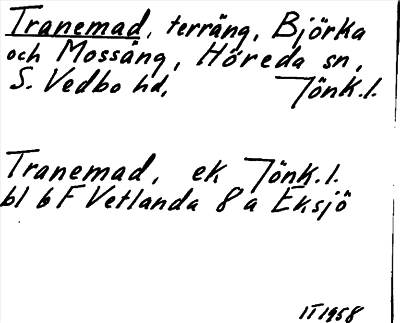 Tranemad, terräng, Björka
och Mossäng, Höreda sn,
S. Vedbo hd, Jönk.l.
Tranemad, ek Jönk.l.
bl 6 F Vetlanda 8 a Eksjö
1958